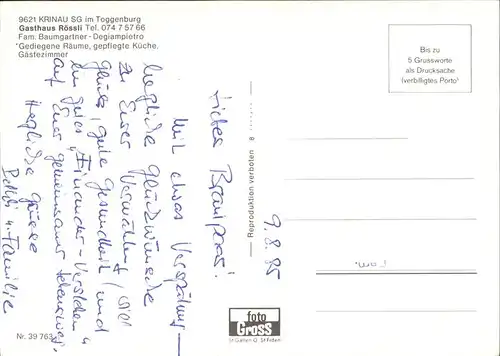 9621 KRINAU SG im Toggenburg
Gasthaus Rössli Tel. 074 7 57 66
Fam. Baumgartner - Degiampietro
Gediegene Räume, gepflegte Küche,
Gästezimmer
Bis zu
5 Grussworte
als Drucksache
(verbilligtes Porto)
9.8.85
Liebes Brautpaar!
Mit etwas Verspätung –
herzliche Glückwünsche
zu Eurer Vermählung / viel
Glück, gute Gesundheit / und
ein gutes "Einander-Verstehen"
auf Eurem gemeinsamen Lebensweg.
Herzliche Grüsse
u. Familie
Fam.
Reproduktion verboten
foto
Gross
St. Gallen O. St. Fiden
Nr. 39 763